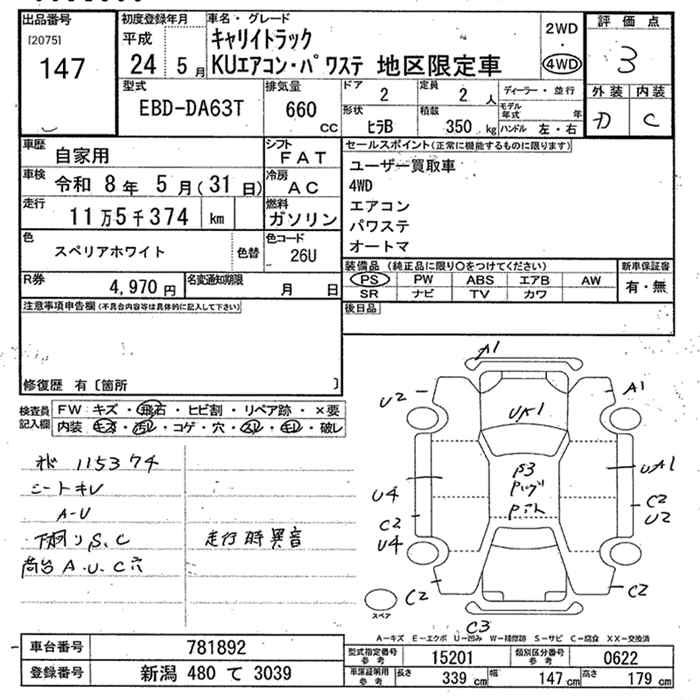 出品番号
[2075]
147
初度登録年月
平成
24 5月
車名・グレード
キャリイトラック
KUエアコン・パワステ 地区限定車
2WD
・
4WD
評価点
3
外装 内装
D C
型式
EBD-DA63T
排気量
660
cc
ドア
2
定員
2 人
形状
ヒラB
積載
350 kg
ディーラー・並行
モデル年式 年
ハンドル 左・右
車歴
自家用
シフト
FAT
車検
令和 8年 5月(31日)
冷房
AC
走行
11万5千374 km
燃料
ガソリン
色
スペリアホワイト
色替
色コード
26U
R券
4,970 円
名変通知期限
月 日
セールスポイント(正常に機能するものに限ります)
ユーザー買取車
4WD
エアコン
パワステ
オートマ
装備品 (純正品に限り○をつけてください)
PS PW ABS エアB AW
SR ナビ TV カワ
新車保証書
有・無
後日品
注意事項申告欄(不具合内容等は具体的に記入して下さい)
修復歴 有〔箇所 〕
検査員記入欄
FW キズ・飛石・ヒビ割・リペア跡・×要
内装 キズ・汚レ・コゲ・穴・スレ・キレ・破レ
115374
シートキレ
A-U
下廻りS、C
走行時異音
荷台A.U.C穴
A1
U2
A1
UA1
UA1
P3
U4
C2
C2
U2
U4
C2
C2
C3
スペア
A-キズ E-エクボ U-凹み W-補修跡 S-サビ C-腐食 XX-交換済
車台番号
781892
登録番号
新潟 480 て 3039
型式指定番号
参考
15201
類別区分番号
参考
0622
車検証明用
参考
長さ
339 cm
幅
147 cm
高さ
179 cm